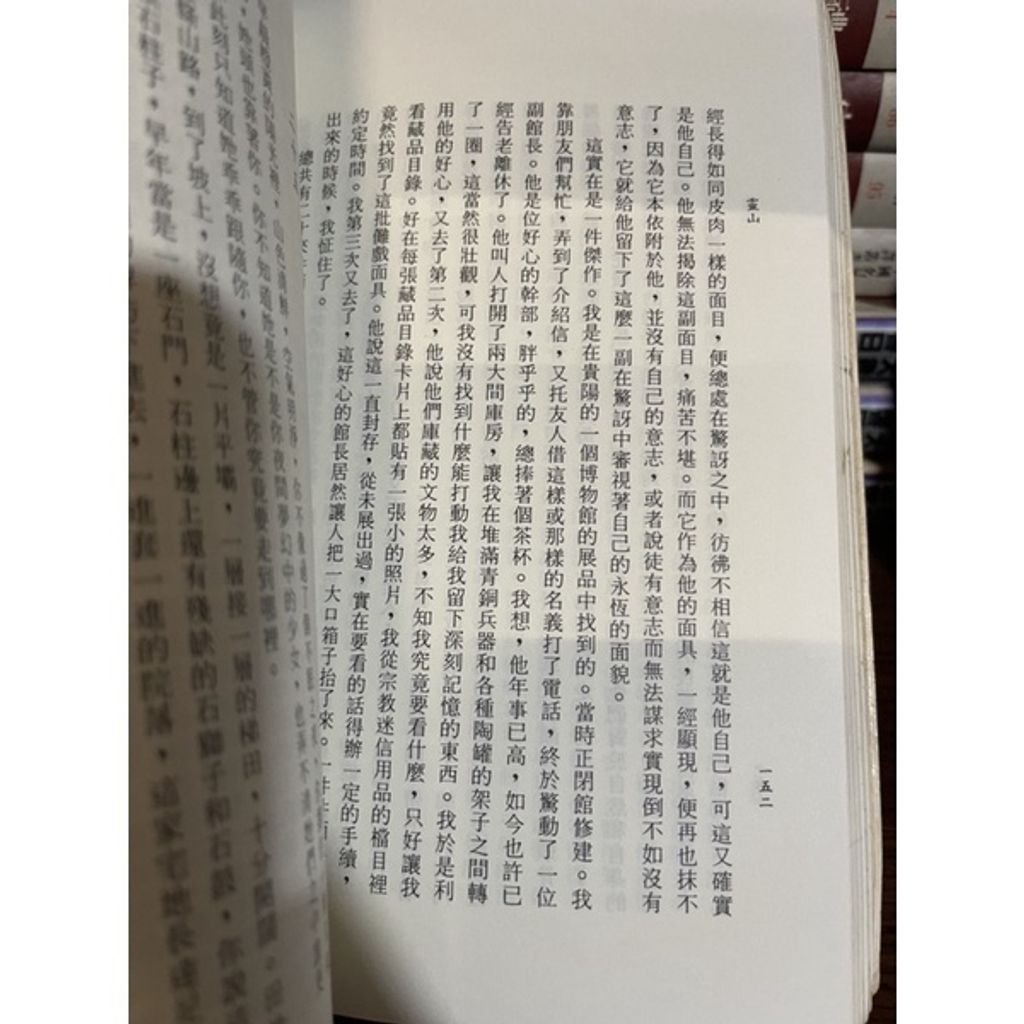 靈山
經長得如同皮肉一樣的面目，便總處在驚訝之中，彷彿不相信這就是他自己，可這又確實
是他自己。他無法揭除這副面目，痛苦不堪。而它作為他的面具，一經顯現，便再也抹不
了，因為它本依附於他，並沒有自己的意志，或者說徒有意志而無法謀求實現倒不如沒有
意志，它就給他留下了這麼一副在驚訝中審視著自己的永恆的面貌。
這實在是一件傑作。我是在貴陽的一個博物館的展品中找到的。當時正閉館修建。我
靠朋友們幫忙，弄到了介紹信，又托友人借這樣或那樣的名義打了電話，終於驚動了一位
副館長。他是位好心的幹部，胖乎乎的，總捧著個茶杯。我想，他年事已高，如今也許已
經告老離休了。他叫人打開了兩大間庫房，讓我在堆滿青銅兵器和各種陶罐的架子之間轉
了一圈，這當然很壯觀，可我沒有找到什麼能打動我給我留下深刻記憶的東西。我於是利
用他的好心，又去了第二次，他說他們庫藏的文物太多，不知我究竟要看什麼，只好讓我
看藏品目錄。好在每張藏品目錄卡片上都貼有一張小的照片，我從宗教迷信用品的檔目裡
竟然找到了這批儺戲面具。他說這一直封存，從未展出過，實在要看的話得辦一定的手續，
約定時間。我第三次又去了，這好心的館長居然讓人把一大口箱子抬了來。一件
出來的時候，我怔住了。
總共有二十
一五二
你不知道她是不是你夜間夢幻中的少女，也
此刻只知道她乖乖跟隨你，也不管你究竟要走到哪裡。
山路，到了坡上，沒想竟是一片平壩，一層接一層的梯田，十分開闊。
石柱子，早年當是一座石門，石柱邊上還有殘缺的石獅子和石鼓，你說